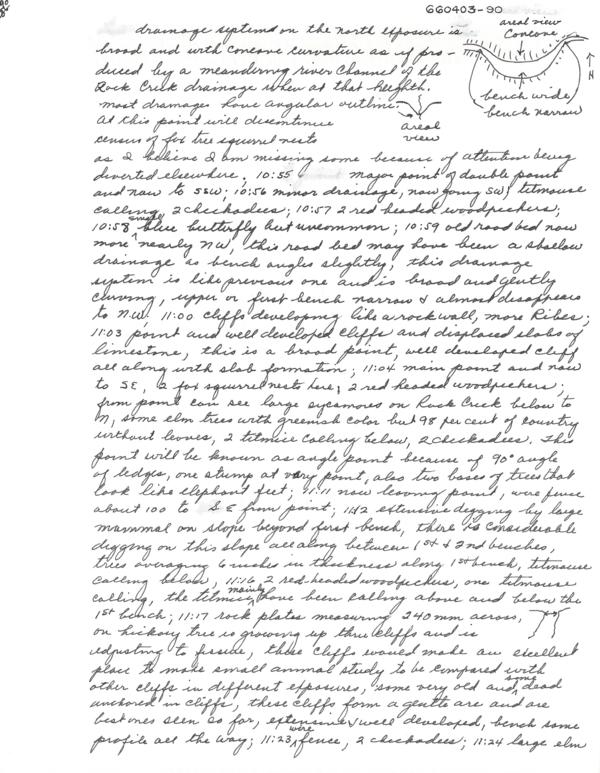 660403-90
drainage systems on the north exposure is
broad and with concave curvature as if pro-
duced by a meandering river channel of the
Rock Creek drainage when at that heighth.
most drainages have angular outline
At this point will discontinue
census of fox tree squirrel nests
areal view
concave
N
bench wide
bench narrow
areal
view
as I believe I am missing some because of attention being
diverted elsewhere. 10:55 major point of double point
and now to SSW; 10:56 minor drainage, now going SW; titmouse
calling 2 chickadees; 10:57 2 red headed woodpeckers;
10:58 small blue butterfly but uncommon; 10:59 old road bed now
more nearly NW, this road bed may have been a shallow
drainage as bench angles slightly, this drainage
system is like previous one and is broad and gently
curving, upper or first bench narrow & almost disappears
to N.W. 11:00 cliffs developing like a rock wall, more Ribes;
11:03 point and well developed cliffs and displaced slabs of
limestone, this is a broad point, well developed cliff
all along with slab formation; 11:04 main point and now
to SE, 2 fox squirrel nests here; 2 red headed woodpeckers;
from point can see large sycamores on Rock Creek below to
N, some elm trees with greenish color but 98 per cent of country
without leaves, 2 titmice calling below, 2 chickadees. This
point will be known as angle point because of 90° angle
of ledges, one stump at very point, also two bases of trees that
look like elephant feet; 11:11 now leaving point, wire fence
about 100 to SE from point; 11:12 extensive digging by large
mammal on slope beyond first bench, there is considerable
digging on this slope all along between 1st & 2nd benches,
trees averaging 6 inches in thickness along 1st bench, titmouse
calling below, 11:16 2 red headed woodpeckers, one titmouse
calling, the titmice mainly have been calling above and below the
1st bench; 11:17 rock plates measuring 240 mm across,
on hickory tree is growing up thru cliffs and is
adjusting to fissure, these cliffs would make an excellent
place to make small animal study to be compared with
other cliffs in different exposures, some very old and some dead
anchored in cliffs, these cliffs form a gentle arc and are
best ones seen so far, extensive & well developed, bench same
profile all the way; 11:23 wire fence, 2 chickadees; 11:24 large elm